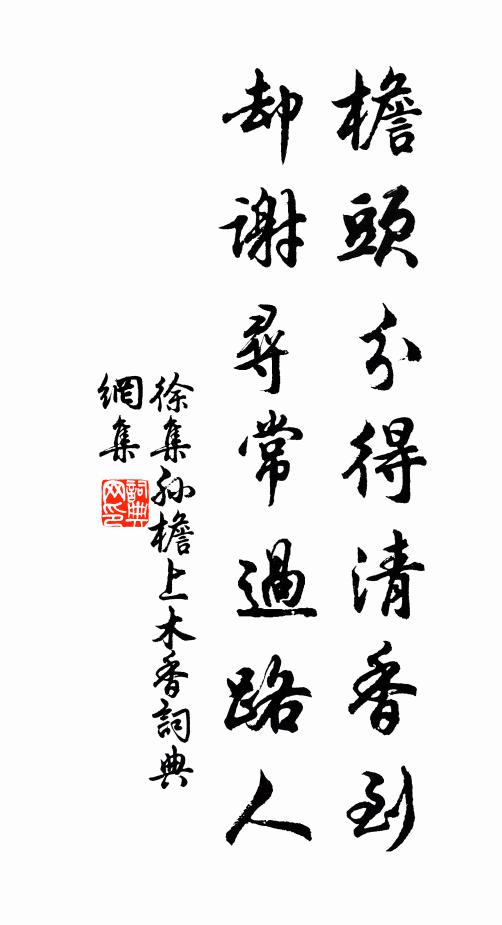 檐頭分得清香到
却謝尋常過路人
徐集孙檐上木香詞典
網集
詞典
网印